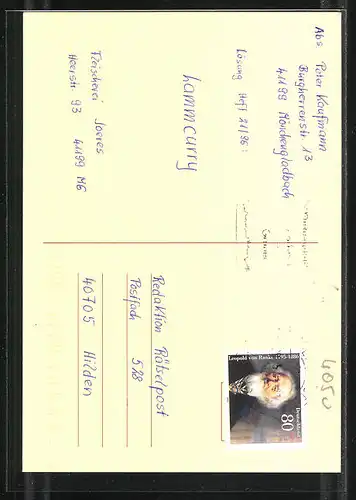 Abs. Peter Kaufmann
Burgherrenstr. 13
41199 Mönchengladbach
Lösung Heft 21/95:
Lammcurry
Fleischerei Joeres
Heerstr. 93 41199 MG
Leopold von Ranke 1795-1886
Deutschland
80
Redaktion Rätselpost
Postfach 528
40705 Hilden
4050